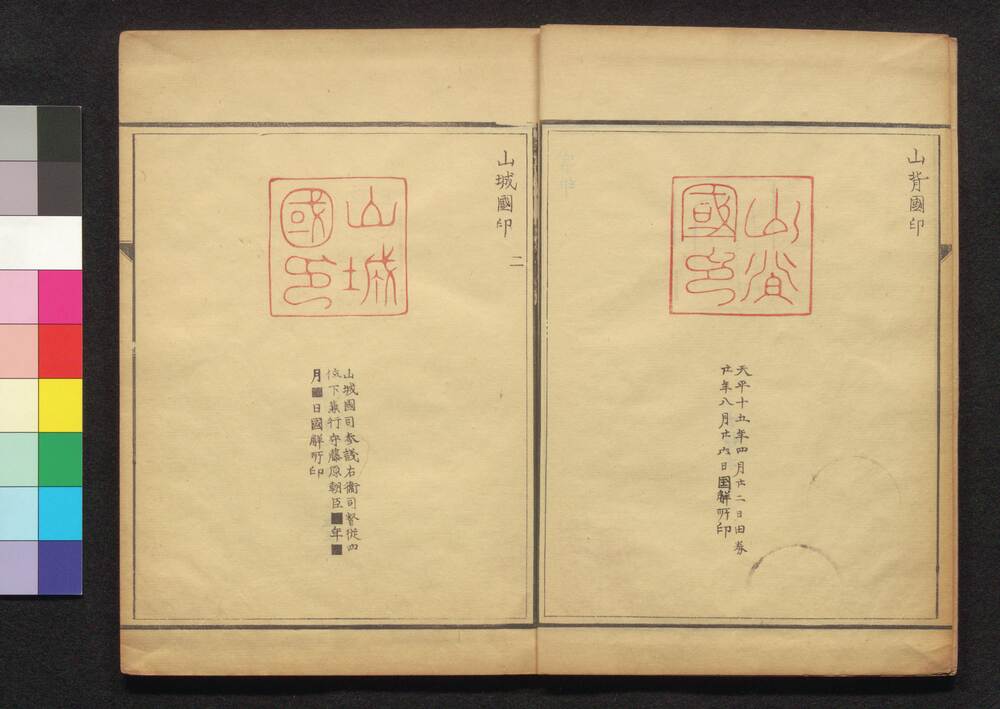 山背國印
山背
國印
天平十五年四月廿二日田券
廿年八月廿六日国解所印
山城國印
二
山城
國印
山城國司参議右衛司督従四
位下兼行守藤原朝臣■年■
月■日國解所印